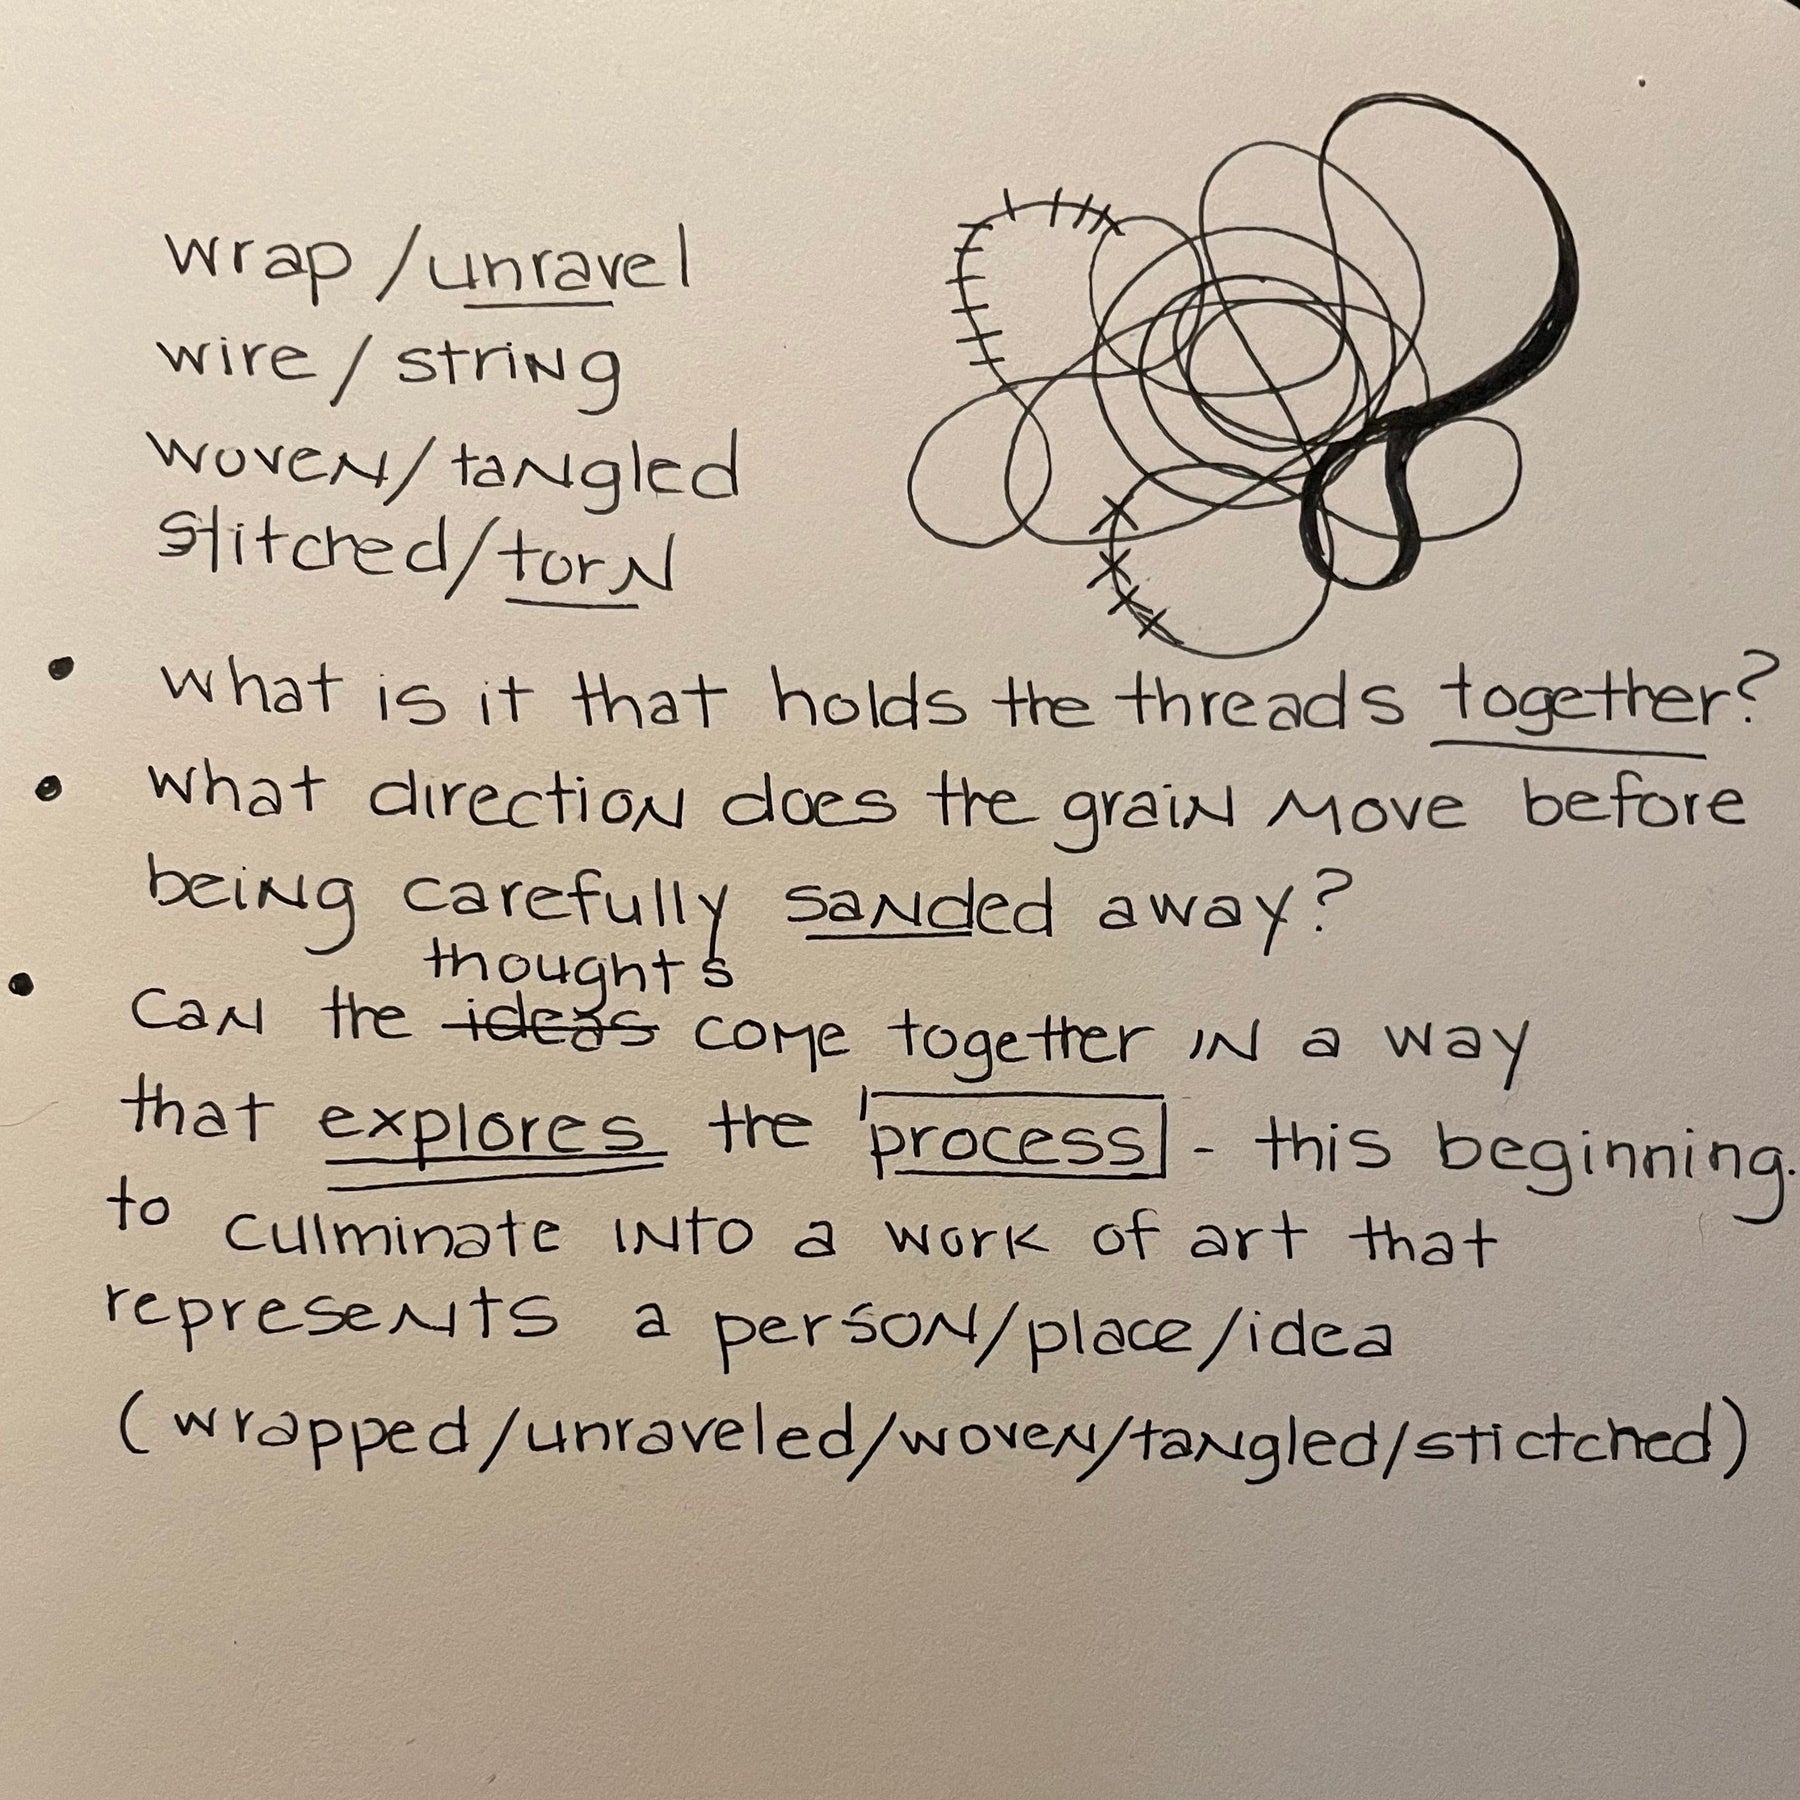 wrap / unravel
wire / string
woven / tangled
stitched / torn
• what is it that holds the threads together?
• what direction does the grain move before
being carefully sanded away?
thoughts
• can the ideas come together in a way
that explores the process - this beginning.
to culminate into a work of art that
represents a person/place/idea
(wrapped/unraveled/woven/tangled/stictched)